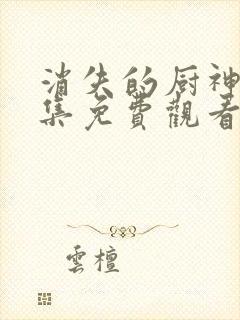 消失的厨神
集免費觀看
雲檀